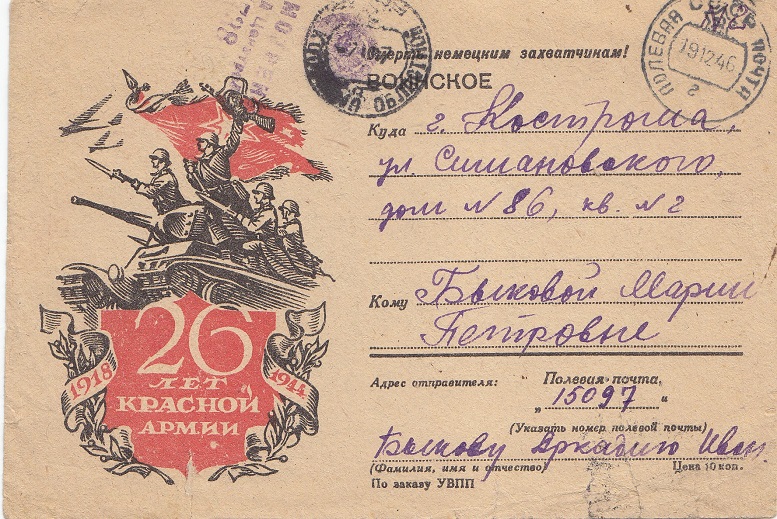 Смерть немецким захватчикам!
ВОИНСКОЕ
СССР
ПОЛЕВАЯ ПОЧТА
191246
г
Куда г. Кострома,
ул. Симановского,
дом № 86, кв. № 2
Кому Быковой Марии
Петровне
Адрес отправителя: Полевая почта
„ 15097 "
(Указать номер полевой почты)
Быкову Аркадию Иван.
(Фамилия, имя и отчество) Цена 10 коп.
По заказу УВПП
26
1918 ЛЕТ 1944
КРАСНОЙ
АРМИИ